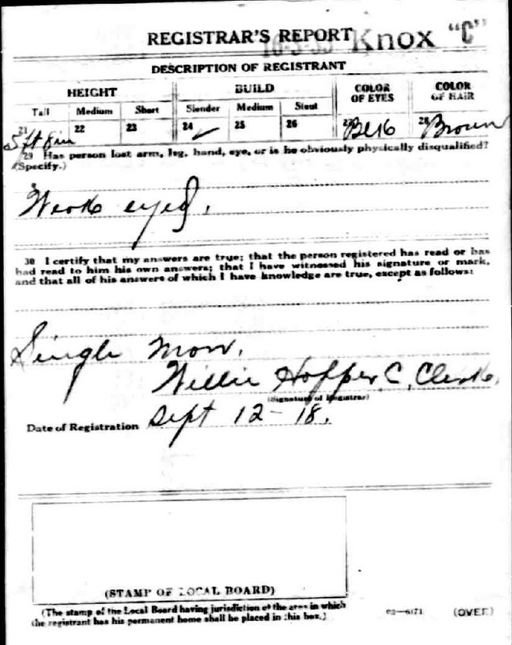 REGISTRAR'S REPORT Knox "C"
DESCRIPTION OF REGISTRANT
HEIGHT BUILD COLOR OF EYES COLOR OF HAIR
Tall Medium Short Slender Medium Stout
21 22 23 24 ✓ 25 26 27 Blk 28 Brown
5 ft
29 Has person lost arm, leg, hand, eye, or is he obviously physically disqualified?
(Specify.)
Weak eyes.
30 I certify that my answers are true; that the person registered has read or has
had read to him his own answers; that I have witnessed his signature or mark,
and that all of his answers of which I have knowledge are true, except as follows:
Single man.
Willie Hopper C, Clerk.
(Signature of Registrar)
Date of Registration Sept 12-18.
(STAMP OF LOCAL BOARD)
(The stamp of the Local Board having jurisdiction of the area in which
the registrant has his permanent home shall be placed in this box.)
03—6171 (OVER)